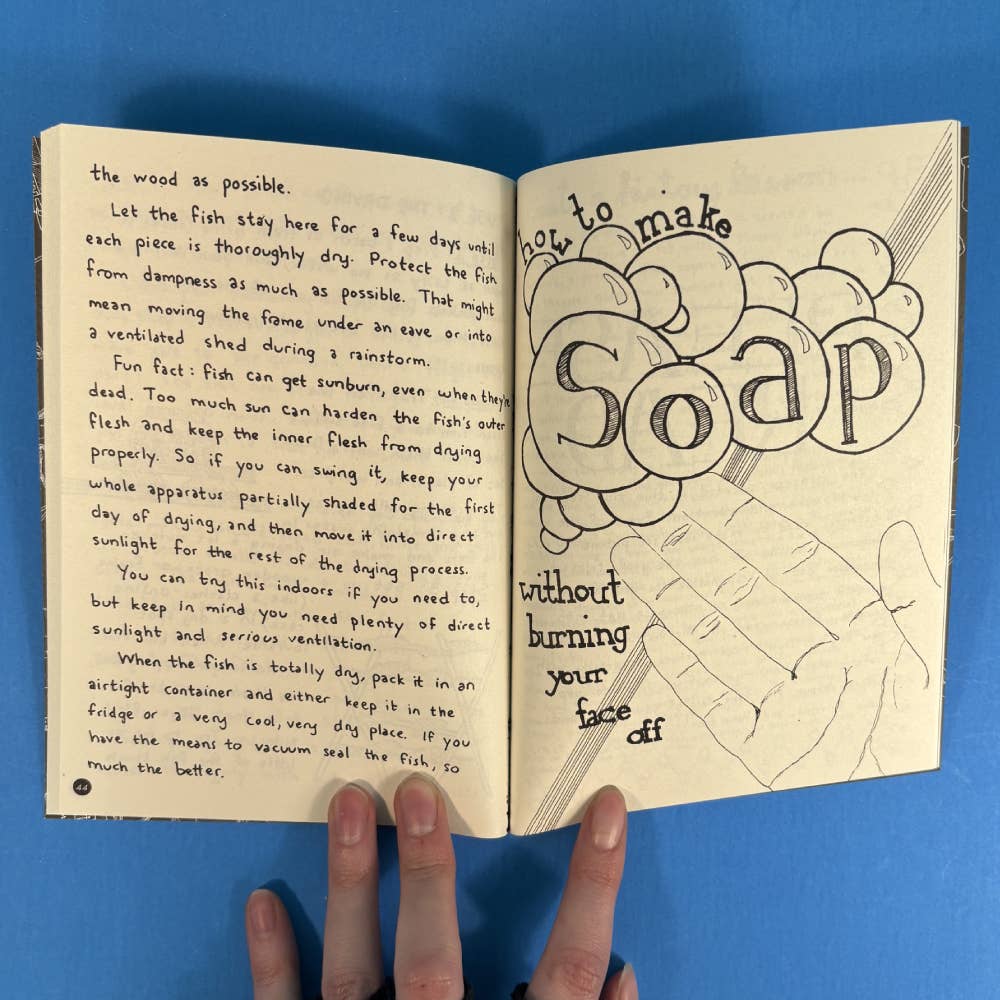 the wood as possible.
Let the fish stay here for a few days until
each piece is thoroughly dry. Protect the fish
from dampness as much as possible. That might
mean moving the frame under an eave or into
a ventilated shed during a rainstorm.
Fun fact: fish can get sunburn, even when they're
dead. Too much sun can harden the fish's outer
flesh and keep the inner flesh from drying
properly. So if you can swing it, keep your
whole apparatus partially shaded for the first
day of drying, and then move it into direct
sunlight for the rest of the drying process.
You can try this indoors if you need to,
but keep in mind you need plenty of direct
sunlight and serious ventilation.
When the fish is totally dry, pack it in an
airtight container and either keep it in the
fridge or a very cool, very dry place. If you
have the means to vacuum seal the fish, so
much the better.
44
how to make
Soap
without
burning
your
face
off